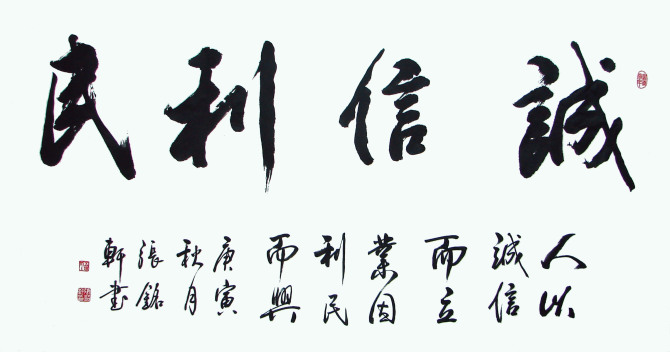 誠信利民
人以
誠信
而立
業因
利民
而興
庚寅
秋月
張銘
軒書